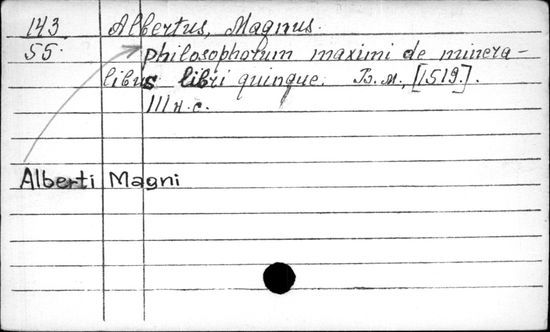 143 Albertus, Magnus.
55. philosophorum maximi de minera-
libus libri quinque. Б. м., [1519.].
III н. с.
Alberti Magni